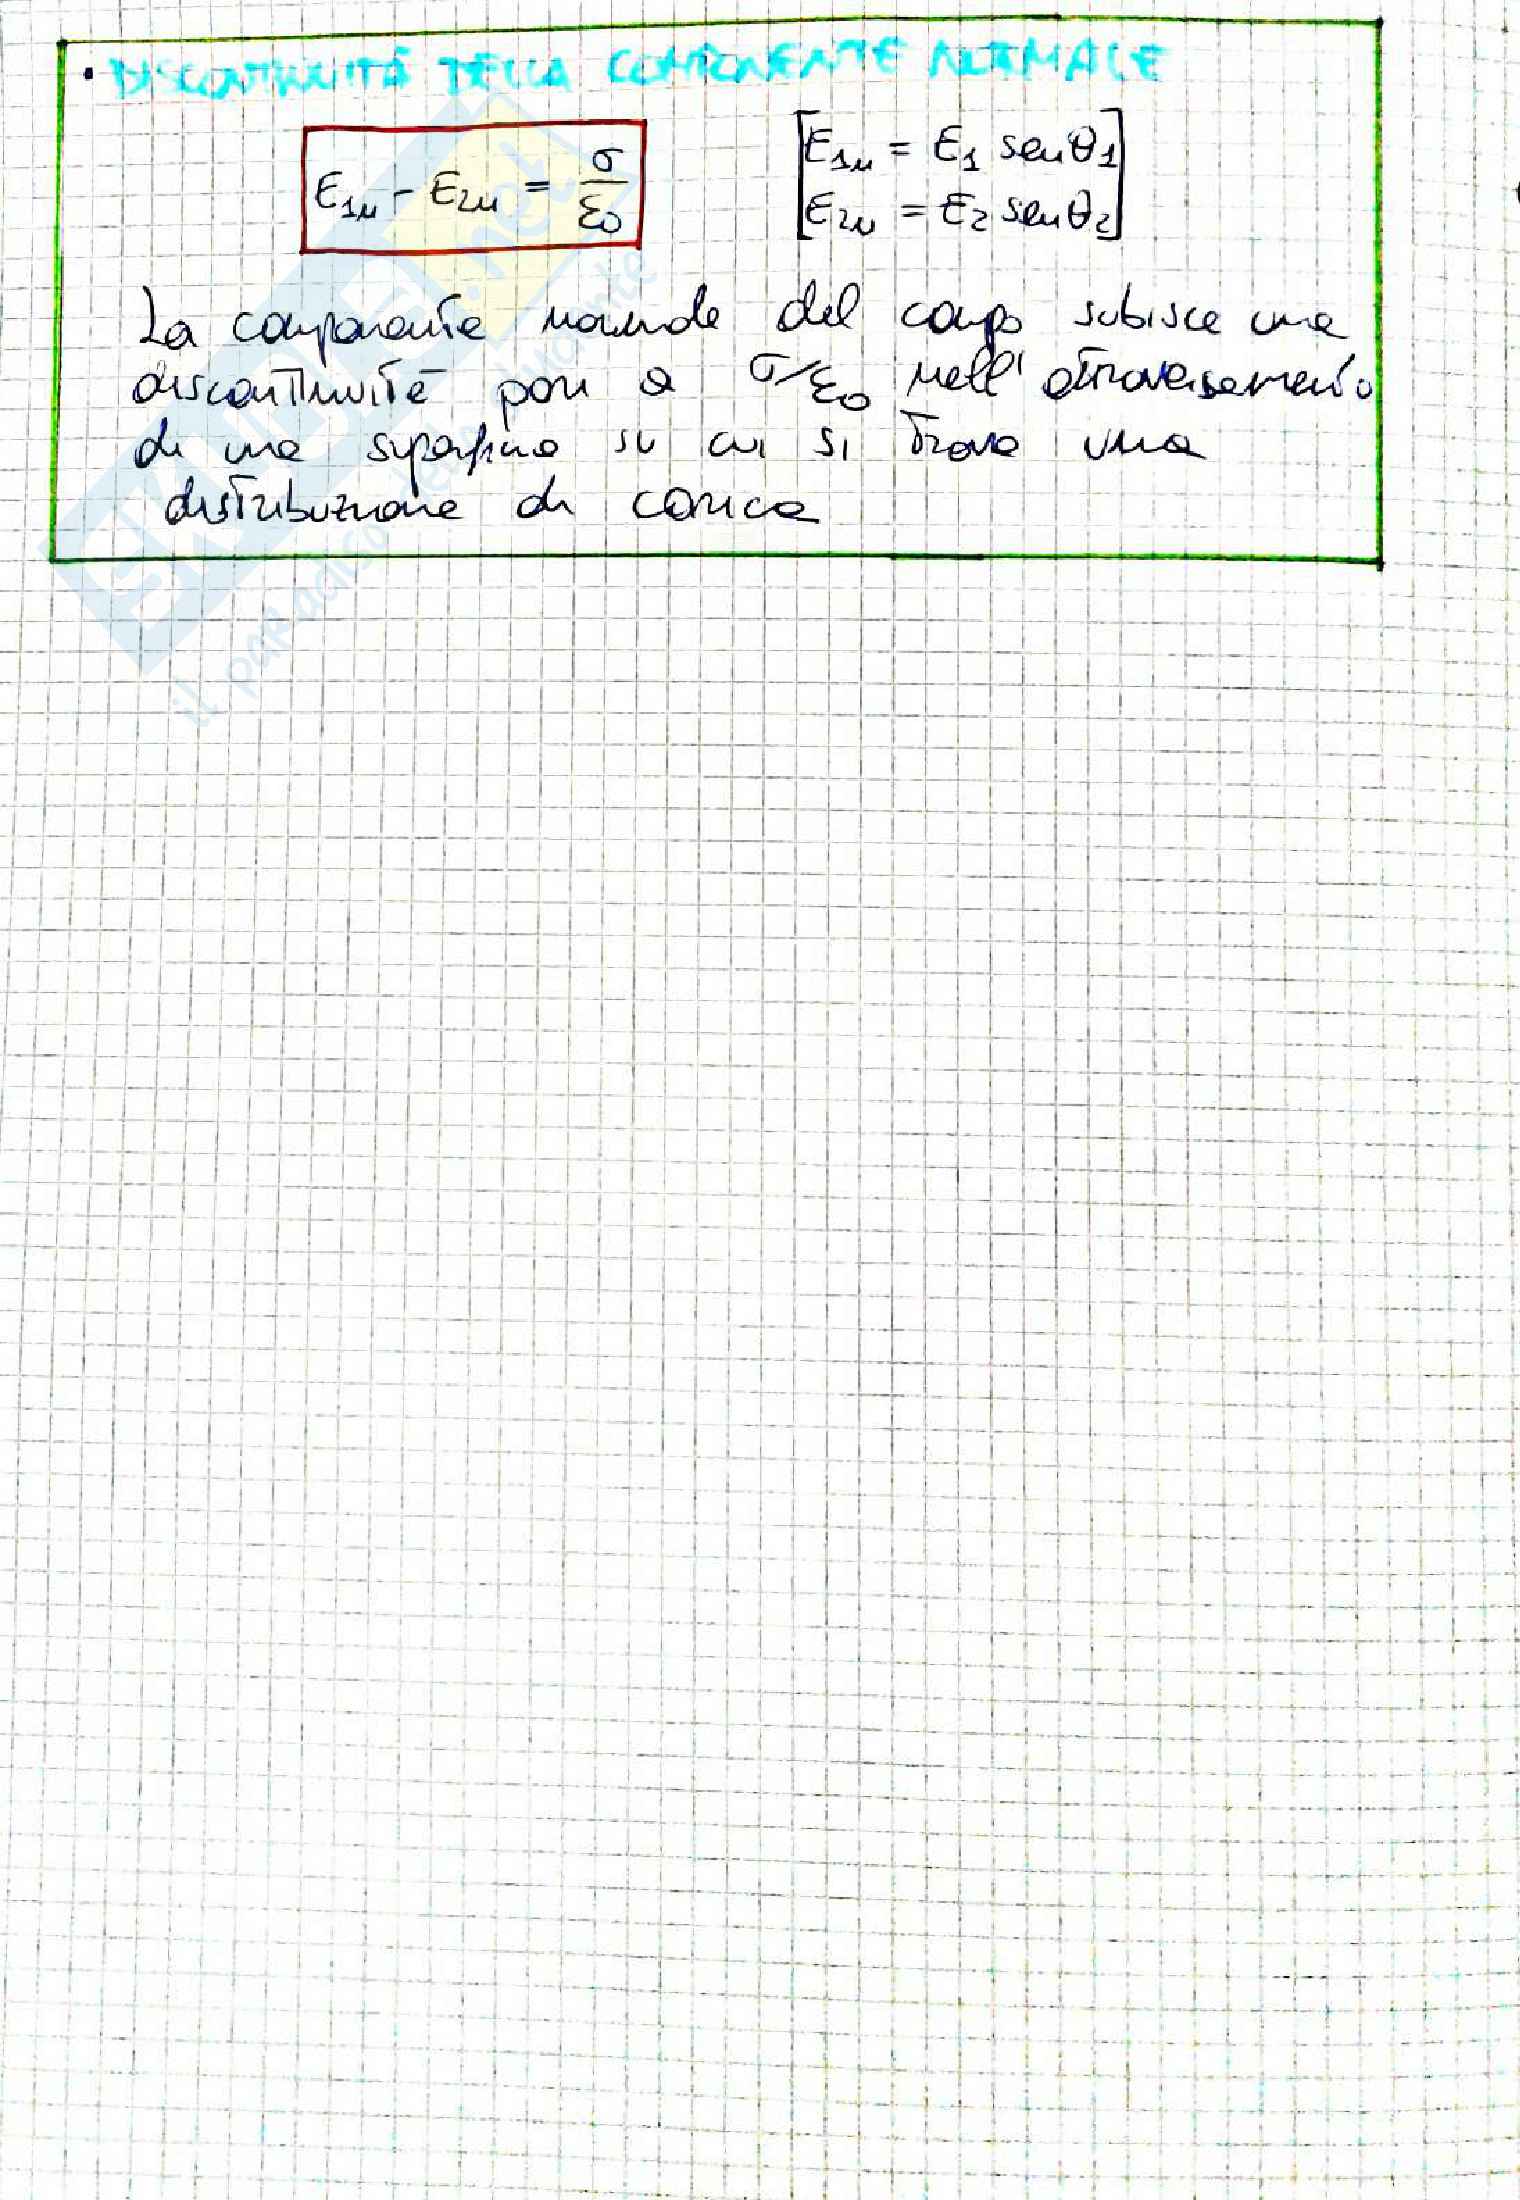 • DISCONTINUITÀ DELLA COMPONENTE NORMALE
E1n - E2n = σ/ε0
[E1n = E1 senθ1
E2n = E2 senθ2]
La componente normale del campo subisce una
discontinuità pari a σ/ε0 nell'attraversamento
di una superficie su cui si trova una
distribuzione di carica
SKUOLA.net
il paradiso dello studente